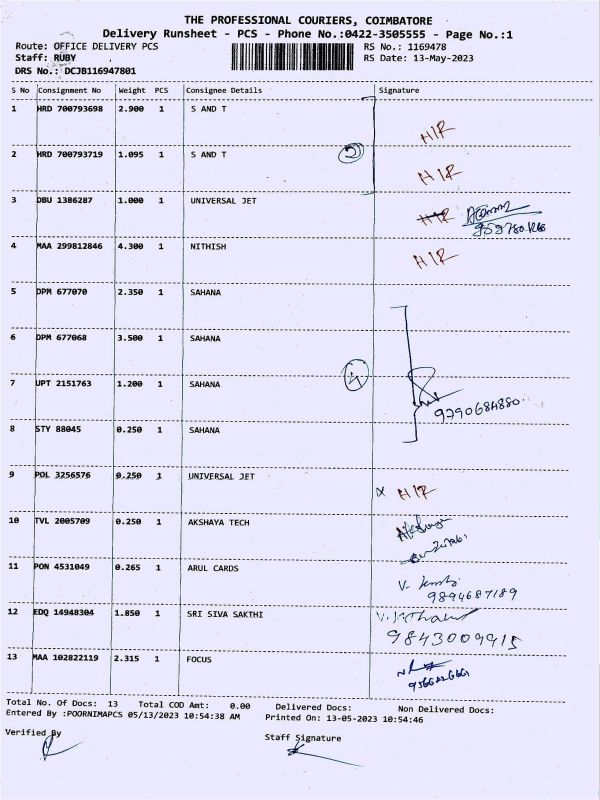 THE PROFESSIONAL COURIERS, COIMBATORE
Delivery Runsheet - PCS - Phone No.:0422-3505555 - Page No.:1
Route: OFFICE DELIVERY PCS RS No.: 1169478
Staff: RUBY RS Date: 13-May-2023
DRS No.: DCJB116947801
S No Consignment No Weight PCS Consignee Details Signature
1 HRD 700793698 2.900 1 S AND T
H/R
2 HRD 700793719 1.095 1 S AND T 2
H/R
3 DBU 1386287 1.000 1 UNIVERSAL JET
H/R
4 MAA 299812846 4.300 1 NITHISH H/R
5 DPM 677070 2.350 1 SAHANA
6 DPM 677068 3.500 1 SAHANA
7 UPT 2151763 1.200 1 SAHANA 4
9790684880
8 STY 88045 0.250 1 SAHANA
9 POL 3256576 0.250 1 UNIVERSAL JET
x H/R
10 TVL 2005709 0.250 1 AKSHAYA TECH
11 PON 4531049 0.265 1 ARUL CARDS
9894687189
12 EDQ 14948304 1.850 1 SRI SIVA SAKTHI
9843009915
13 MAA 102822119 2.315 1 FOCUS
Total No. Of Docs: 13 Total COD Amt: 0.00 Delivered Docs: Non Delivered Docs:
Entered By :POORNIMAPCS 05/13/2023 10:54:38 AM Printed On: 13-05-2023 10:54:46
Verified By
Staff Signature